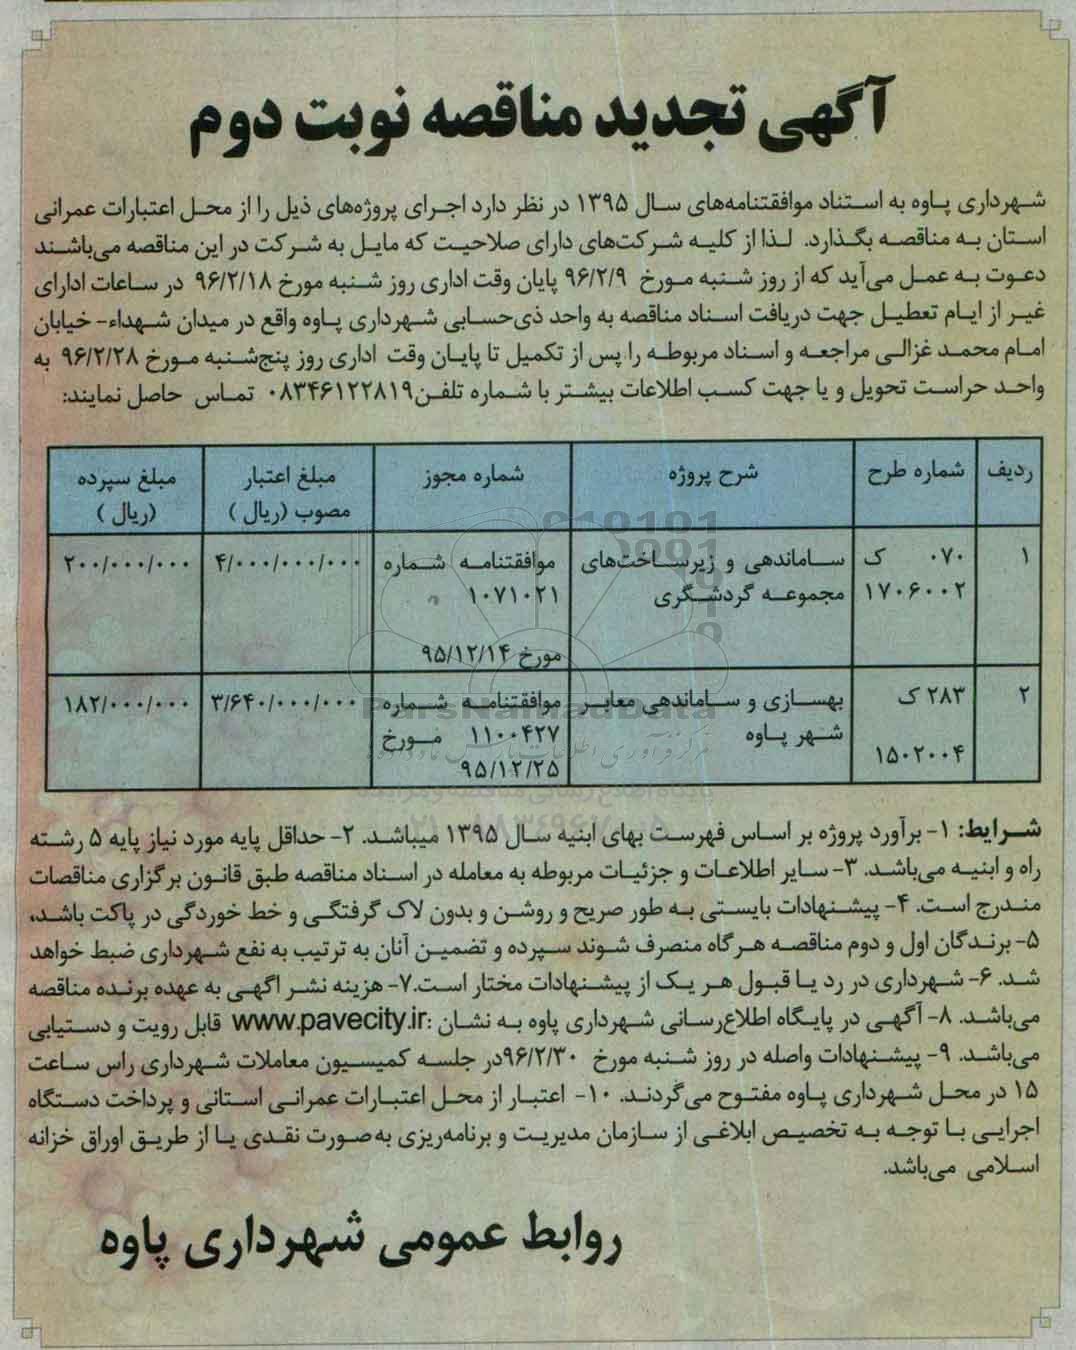 آگهی تجدید مناقصه نوبت دوم
شهرداری پاوه به استناد موافقتنامه‌های سال ۱۳۹۵ در نظر دارد اجرای پروژه‌های ذیل را از محل اعتبارات عمرانی
استان به مناقصه بگذارد. لذا از کلیه شرکت‌های دارای صلاحیت که مایل به شرکت در این مناقصه می‌باشند
دعوت به عمل می‌آید که از روز شنبه مورخ ۹۶/۲/۹ پایان وقت اداری روز شنبه مورخ ۹۶/۲/۱۸ در ساعات ادارای
غیر از ایام تعطیل جهت دریافت اسناد مناقصه به واحد ذی‌حسابی شهرداری پاوه واقع در میدان شهداء- خیابان
امام محمد غزالی مراجعه و اسناد مربوطه را پس از تکمیل تا پایان وقت اداری روز پنج‌شنبه مورخ ۹۶/۲/۲۸ به
واحد حراست تحویل و یا جهت کسب اطلاعات بیشتر با شماره تلفن۰۸۳۴۶۱۲۲۸۱۹ تماس حاصل نمایند:
ردیف شماره طرح شرح پروژه شماره مجوز مبلغ اعتبار مبلغ سپرده
مصوب (ریال ) (ریال )
۱ ۰۷۰ ک ساماندهی و زیرساخت‌های موافقتنامه شماره ۴/۰۰۰/۰۰۰/۰۰۰ ۲۰۰/۰۰۰/۰۰۰
۱۷۰۶۰۰۲ مجموعه گردشگری ۱۰۷۱۰۲۱
مورخ ۹۵/۱۲/۱۴
۲ ۲۸۳ ک بهسازی و ساماندهی معابر موافقتنامه شماره ۳/۶۴۰/۰۰۰/۰۰۰ ۱۸۲/۰۰۰/۰۰۰
شهر پاوه ۱۱۰۰۴۲۷ مورخ
۱۵۰۲۰۰۴ ۹۵/۱۲/۲۵
ParsNamadData
شرایط: ۱- برآورد پروژه بر اساس فهرست بهای ابنیه سال ۱۳۹۵ میباشد. ۲- حداقل پایه مورد نیاز پایه ۵ رشته
راه و ابنیه می‌باشد. ۳- سایر اطلاعات و جزئیات مربوطه به معامله در اسناد مناقصه طبق قانون برگزاری مناقصات
مندرج است. ۴- پیشنهادات بایستی به طور صریح و روشن و بدون لاک گرفتگی و خط خوردگی در پاکت باشد،
۵- برندگان اول و دوم مناقصه هرگاه منصرف شوند سپرده و تضمین آنان به ترتیب به نفع شهرداری ضبط خواهد
شد. ۶- شهرداری در رد یا قبول هر یک از پیشنهادات مختار است.۷- هزینه نشر اگهی به عهده برنده مناقصه
می‌باشد. ۸- آگهی در پایگاه اطلاع‌رسانی شهرداری پاوه به نشان :www.pavecity.ir قابل رویت و دستیابی
می‌باشد. ۹- پیشنهادات واصله در روز شنبه مورخ ۹۶/۲/۳۰در جلسه کمیسیون معاملات شهرداری راس ساعت
۱۵ در محل شهرداری پاوه مفتوح می‌گردند. ۱۰- اعتبار از محل اعتبارات عمرانی استانی و پرداخت دستگاه
اجرایی با توجه به تخصیص ابلاغی از سازمان مدیریت و برنامه‌ریزی به‌صورت نقدی یا از طریق اوراق خزانه
اسلامی می‌باشد.
روابط عمومی شهرداری پاوه